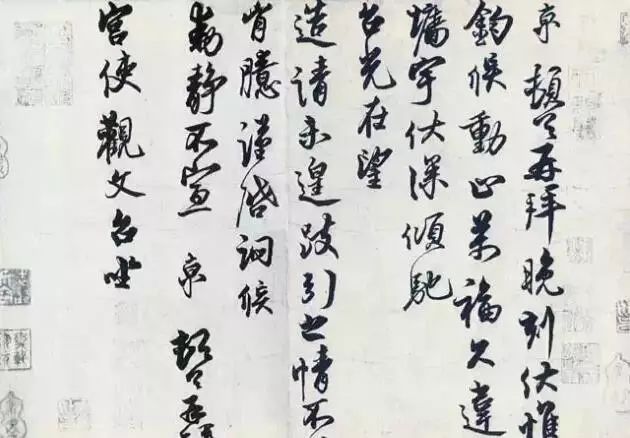 京頓首再拜晚刻伏惟
鈞候動止萬福久違
墻宇伏深傾馳
台光在望
造請未遑跂引之情不
胷臆謹啓詗候
動靜不宣 京 頓首再拜
宮使觀文台坐